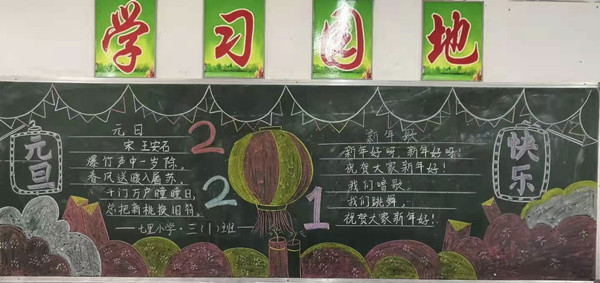 学习园地
元旦
元日
宋 王安石
爆竹声中一岁除,
春风送暖入屠苏。
千门万户曈曈日,
总把新桃换旧符。
——七里小学·三(1)班——
2
2
1
新年歌
新年好呀,新年好呀!
祝贺大家新年好!
我们唱歌,
我们跳舞,
祝贺大家新年好!
快乐